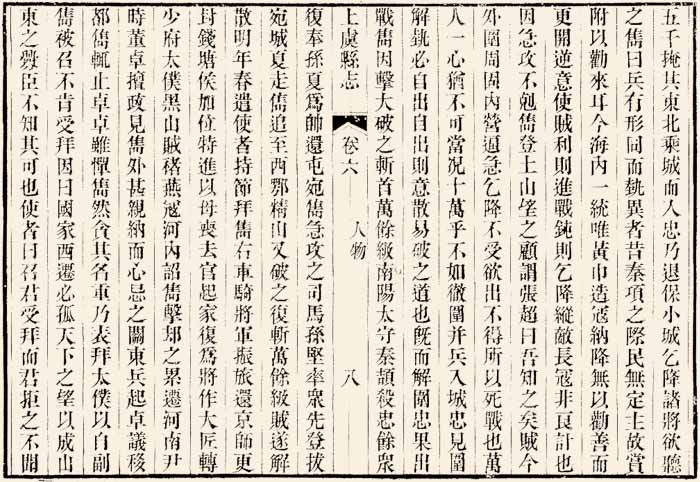 五千掩其東北乘城而入忠乃退保小城乞降諸將欲聽
之儁曰兵有形同而埶異者昔秦項之際民無定主故賞
附以勸來耳今海内一統唯黃巾造冦納降無以勸善而
更開逆意使賊利則進戰鈍則乞降縱敵長冦非良計也
因急攻不剋儁登土山望之顧謂張超曰吾知之矣賊今
外圍周固内營逼急乞降不受欲出不得所以死戰也萬
人一心猶不可當况十萬乎不如徹圍并兵入城忠見圍
解埶必自出自出則意散易破之道也旣而解圍忠果出
戰儁因擊大破之斬首萬餘級南陽太守秦頡殺忠餘衆
上虞縣志 卷六 人物 八
復奉孫夏爲帥還屯宛儁急攻之司馬孫堅率衆先登拔
宛城夏走儁追至西鄂精山又破之復斬萬餘級賊遂解
散明年春遣使者持節拜儁右車騎將軍振旅還京師更
封錢塘侯加位特進以母喪去官起家復爲將作大匠轉
少府太僕黑山賊褚燕冦河内詔儁擊却之累遷河南尹
時董卓擅政見儁外甚親納而心忌之關東兵起卓議移
都儁輒止卓卓雖憚儁然貪其名重乃表拜太僕以自副
儁被召不肯受拜因曰國家西遷必孤天下之望以成山
東之釁臣不知其可也使者曰召君受拜而君拒之不問